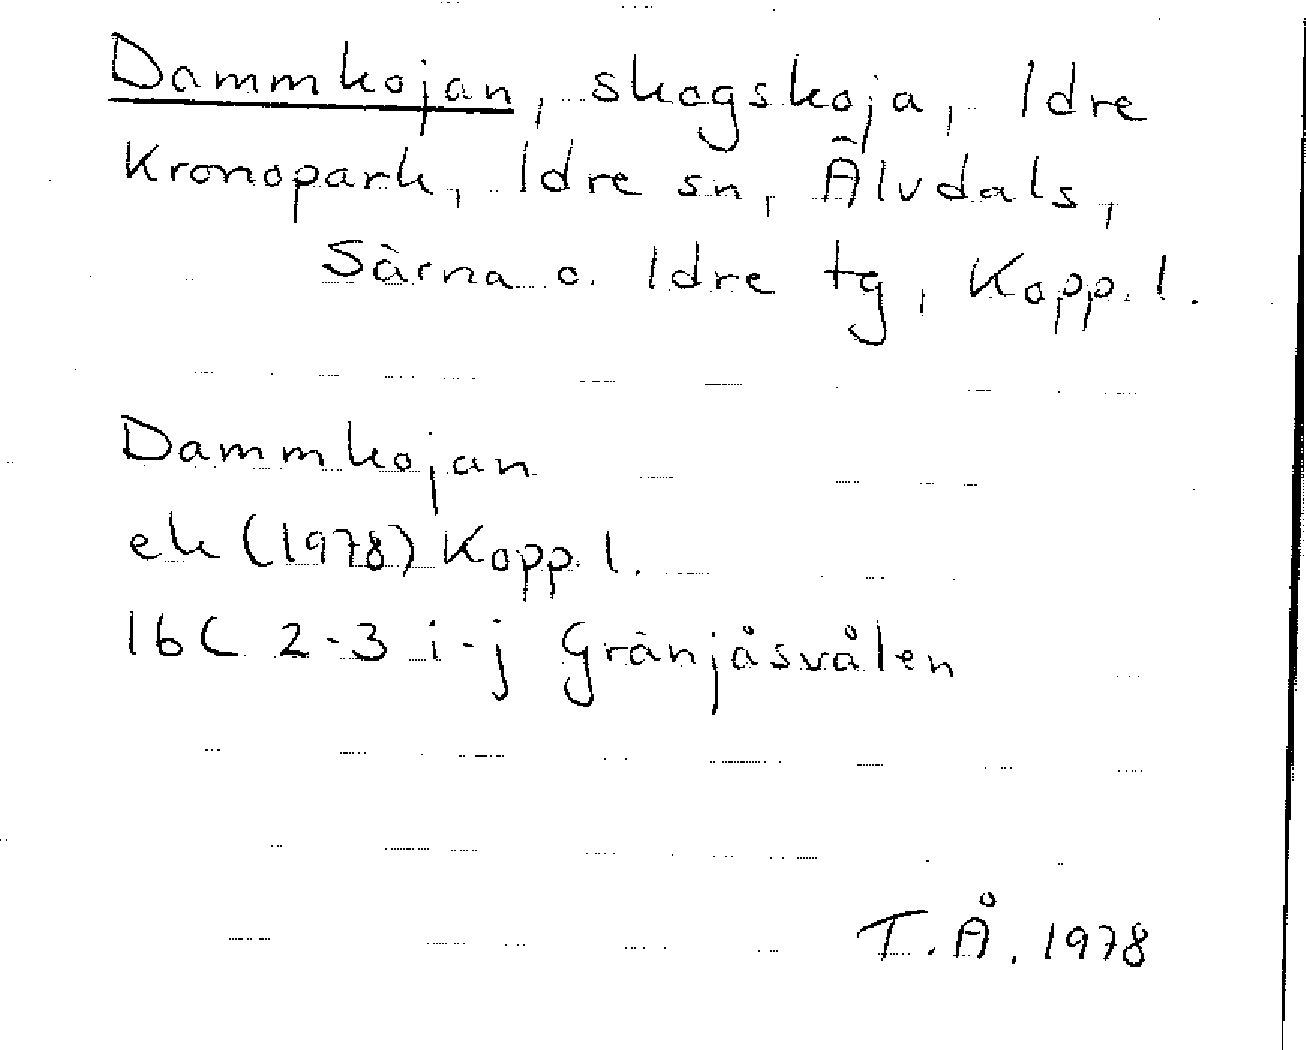 Dammkojan, skogskoja, Idre
Kronopark, Idre sn, Älvdals,
Särna o. Idre tg, Kopp. l.
Dammkojan
ek (1978) Kopp. l.
16C 2-3 i-j Gränjåsvålen
T.Å. 1978